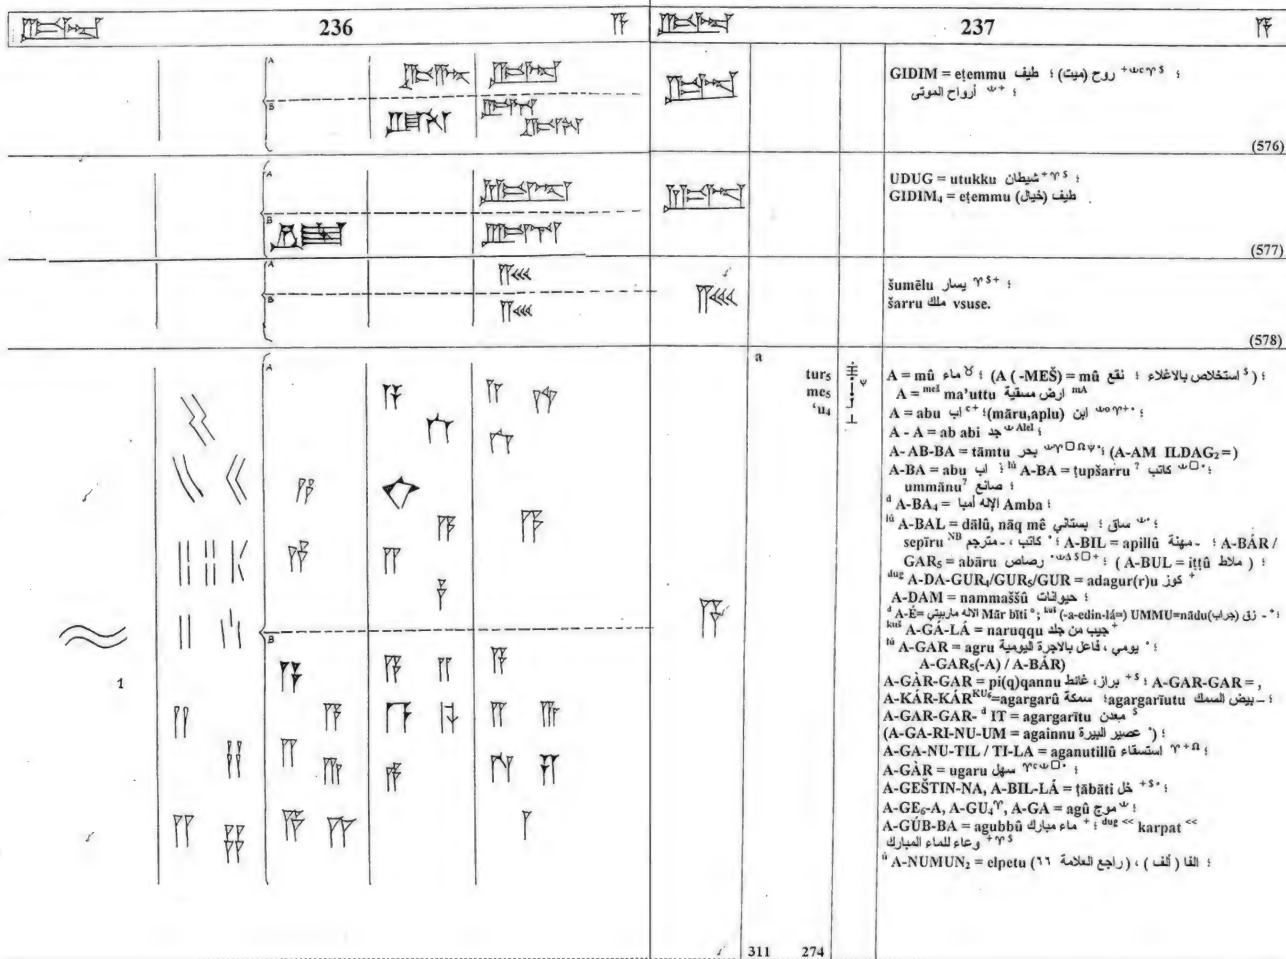 236
237
A
B
GIDIM = eṭemmu روح (ميت) ؛ طيف ؛
؛ أرواح الموتى
(576)
A
B
UDUG = utukku شيطان ؛
GIDIM₄ = eṭemmu طيف (خيال)
(577)
A
B
šumēlu يسار ؛
šarru ملك vsuse.
(578)
A
B
1
a
tur₅
me₅
‘u₄
A = mû ماء ؛ (A ( -MEŠ) = mû استخلاص بالاغلاء ؛ نقع) ؛
A = meš ma'uttu ارض مسقية mA
A = abu اب ؛ (māru,aplu) ابن ؛
A - A = ab abi جد Alel ؛
A- AB-BA = tāmtu بحر ؛ (A-AM ILDAG₂=)
A-BA = abu اب ؛ lú A-BA = ṭupšarru ? كاتب ؛
ummānu? صانع ؛
d A-BA₄ = الإله أمبا Amba ؛
lú A-BAL = dālû, nāq mê ساق ؛ بستاني ؛
sepīru NB كاتب ، ـ مترجم ؛ A-BIL = apillû ـ مهنة ؛ A-BÁR /
GAR₅ = abāru رصاص ؛ ( A-BUL = iṭṭû ملاط ) ؛
dug A-DA-GUR₄/GUR₅/GUR = adagur(r)u كوز +
A-DAM = nammaššû حيوانات ؛
d A-É= الاله ماربيتي Mār bīti ° ; kuš (-a-edin-lá=) UMMU=nādu ـ زق (جراب) ؛
kuš A-GÁ-LÁ = naruqqu جيب من جلد +
lú A-GAR = agru يومي ، فاعل بالاجرة اليومية ؛
A-GAR₅(-A) / A-BÁR)
A-GÀR-GAR = pi(q)qannu براز، غائط ؛ A-GAR-GAR = ,
A-KÁR-KÁR KU₆=agargarû سمكة ؛ agargarīutu ـ بيض السمك ؛
A-GAR-GAR- d IT = agargarītu معدن $
(A-GA-RI-NU-UM = againnu عصير البيرة) ؛
A-GA-NU-TIL / TI-LA = aganutillû استسقاء ؛
A-GÀR = ugaru سهل ؛
A-GEŠTIN-NA, A-BIL-LÁ = ṭābāti خل ؛
A-GE₆-A, A-GU₄, A-GA = agû موج ؛
A-GÚB-BA = agubbû ماء مبارك ؛ dug << karpat <<
وعاء للماء المبارك
ú A-NUMUN₂ = elpetu الفا ( ألف ) ، ( راجع العلامة ٦٦) ؛
311 274